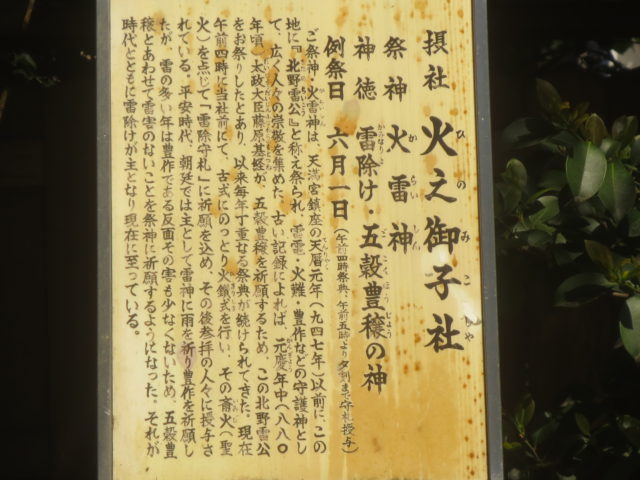 摂社 火之御子社
祭神 火雷神
神徳 雷除け・五穀豊穣の神
例祭日 六月一日(午前四時祭典、午前五時より夕刻まで守札授与)
ご祭神・火雷神は、天満宮鎮座の天暦元年(九四七年)以前に、この
地に『北野雷公』と称え祭られ、雷電・火難・豊作などの守護神とし
て、広く人々の崇敬を集めた。古い記録によれば、元慶年中(八八〇
年頃)太政大臣藤原基経が、五穀豊穣を祈願するため、この北野雷公
をお祭りしたとあり、以来毎年丁重なる祭典が続けられてきた。現在
午前四時に当社前にて、古式にのっとり火鑽式を行い、その斎火(聖
火)を点じて「雷除守札」に祈願を込め、その後参拝の人々に授与さ
れている。平安時代、朝廷では主として雷神に雨を祈り豊作を祈願し
たが、雷の多い年は豊作である反面その害も少なくないため、五穀豊
穣とあわせて雷害のないことを祭神に祈願するようになった。それが
時代とともに雷除けが主となり現在に至っている。